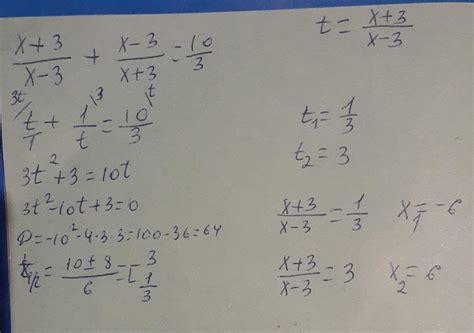 (x+3)/(x-3) + (x-3)/(x+3) = 10/3
t = (x+3)/(x-3)
3t 3 t
t/1 + 1/t = 10/3
3t² + 3 = 10t
3t² - 10t + 3 = 0
D = -10² - 4·3·3 = 100 - 36 = 64
t 1/2 = (10 ± 8)/6 = [ 3
1/3
t₁ = 1/3
t₂ = 3
(x+3)/(x-3) = 1/3 x₁ = -6
(x+3)/(x-3) = 3 x₂ = 6